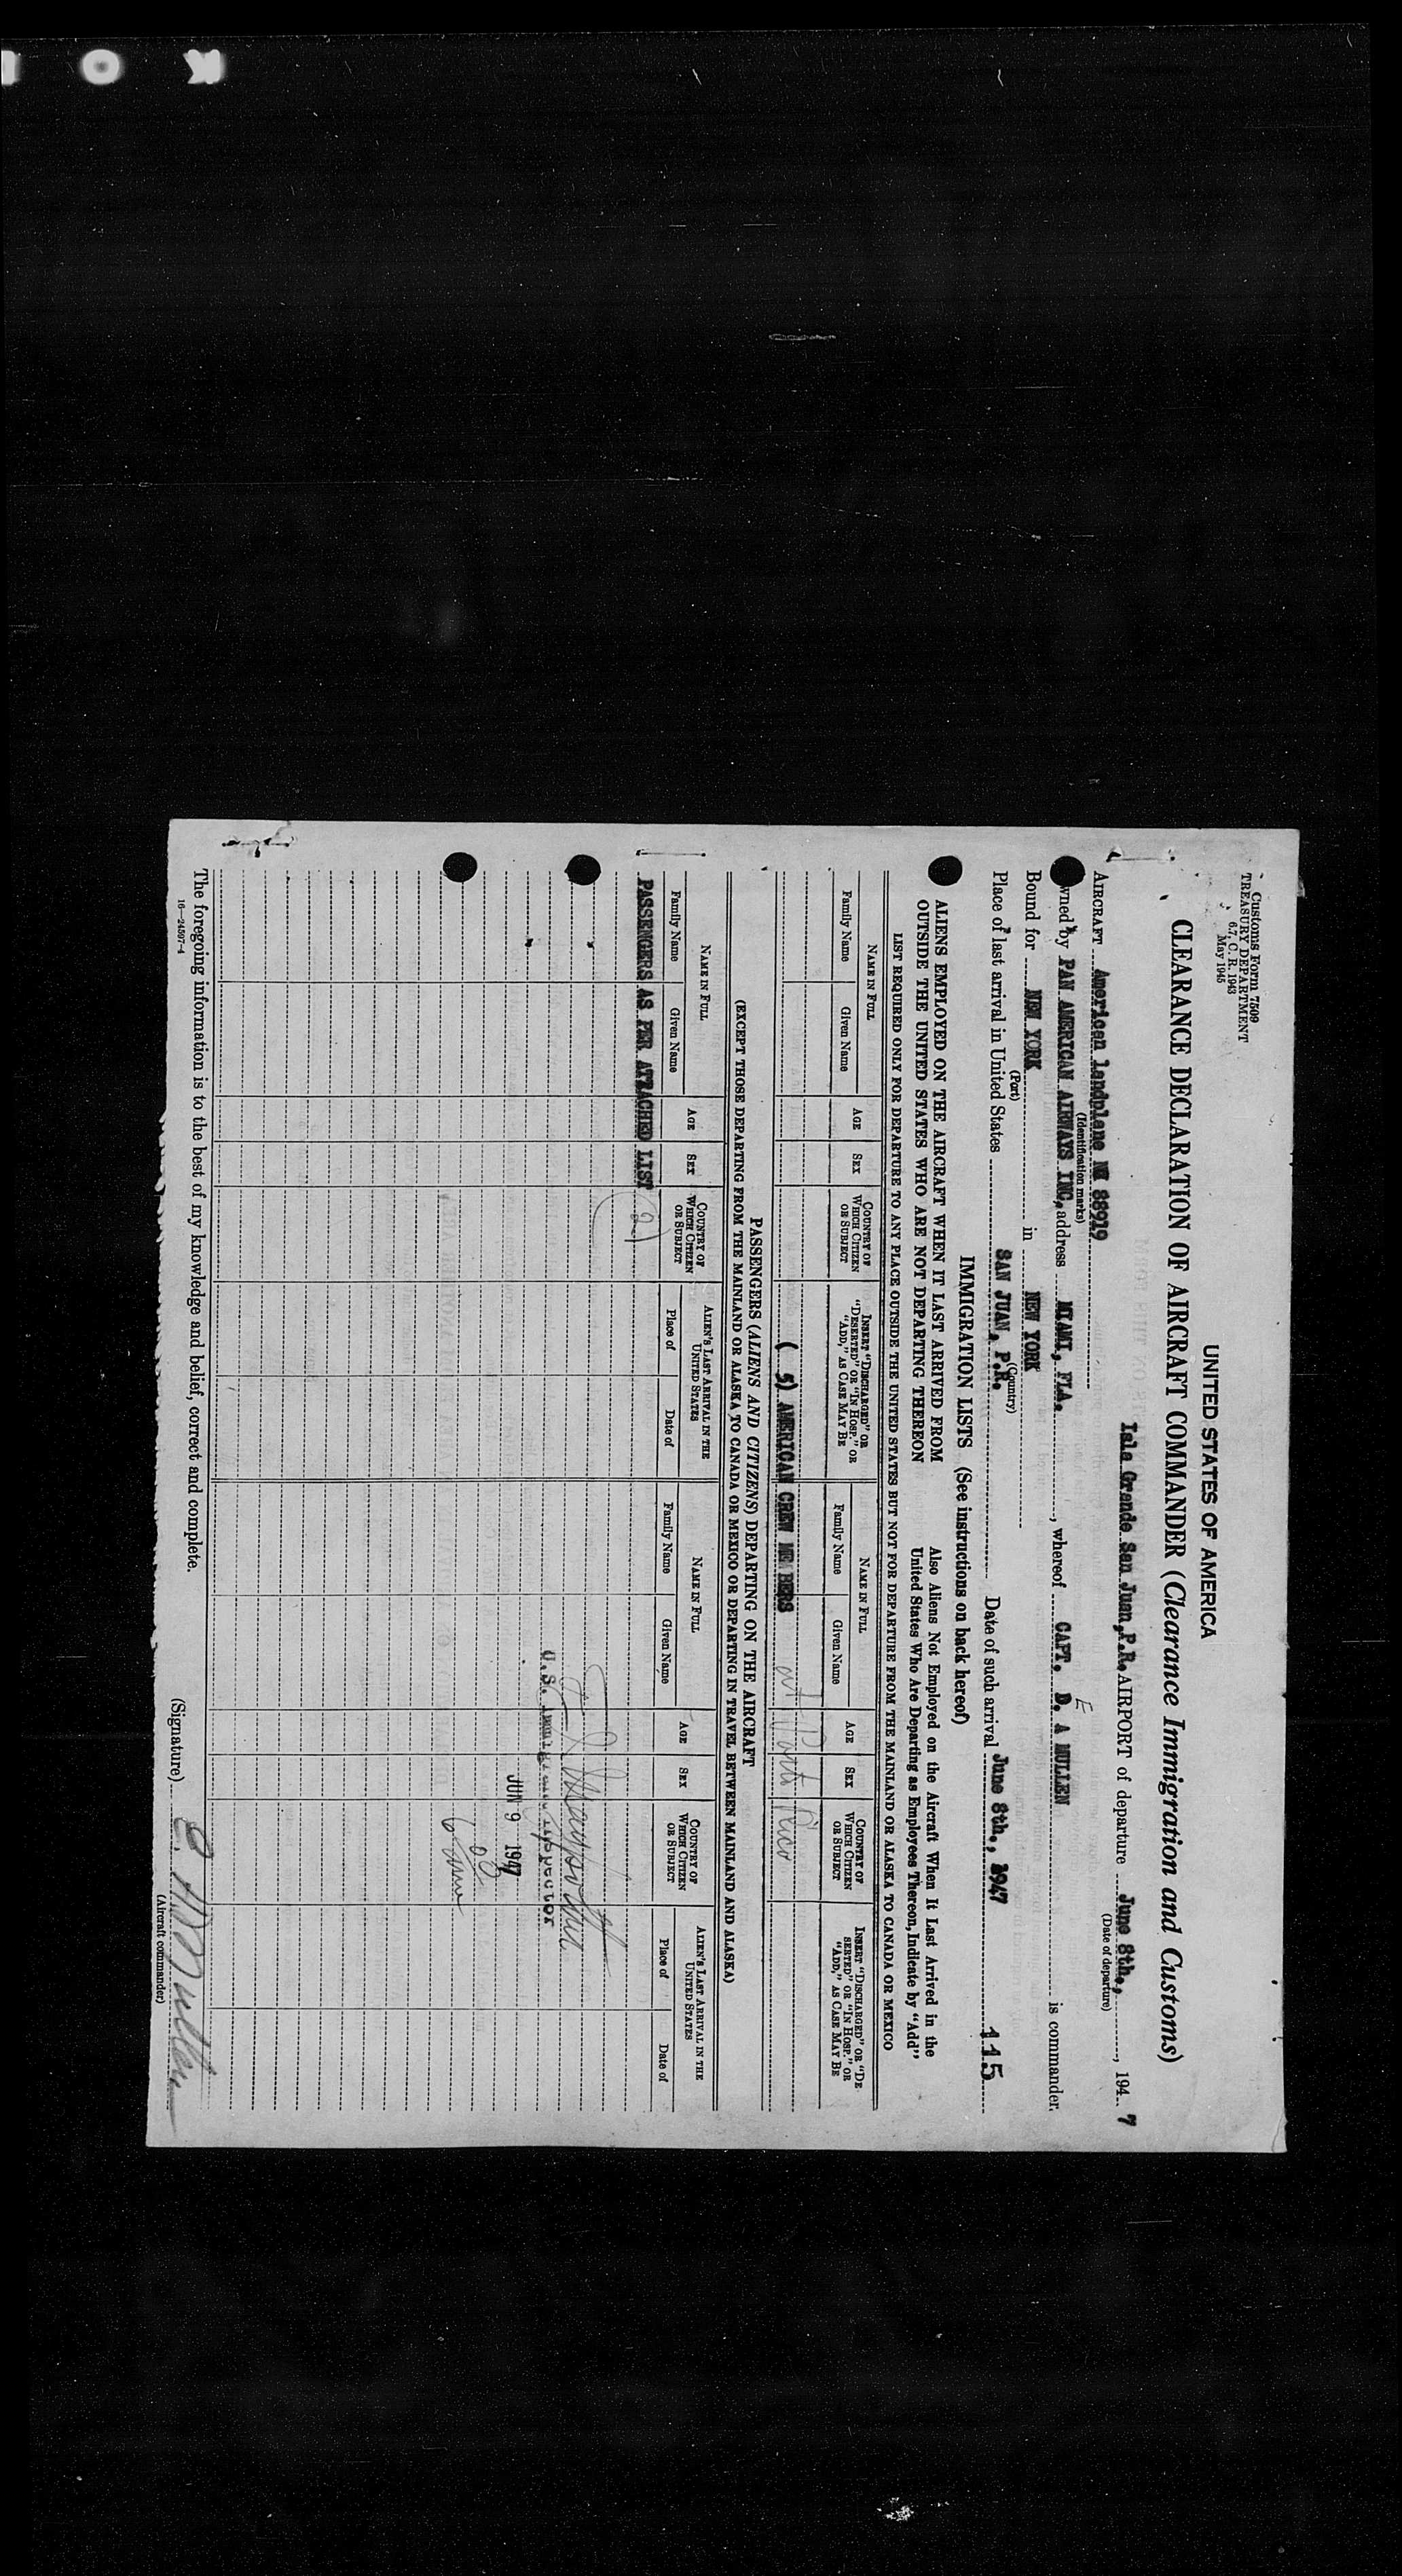 Customs Form 7509
TREASURY DEPARTMENT
6.7, C. R. 1943
May 1945
UNITED STATES OF AMERICA
CLEARANCE DECLARATION OF AIRCRAFT COMMANDER (Clearance Immigration and Customs)
Isla Grande San Juan, P.R. AIRPORT of departure June 8th., , 194 7
(Date of departure)
AIRCRAFT American Landplane NC 88919
(Identification marks)
Owned by PAN AMERICAN AIRWAYS INC, address MIAMI, FLA. , whereof CAPT. D. A MULLEN is commander.
E
Bound for NEW YORK in NEW YORK
(Port) (Country)
Place of last arrival in United States SAN JUAN, P.R. Date of such arrival June 8th., 1947 115
IMMIGRATION LISTS (See instructions on back hereof)
ALIENS EMPLOYED ON THE AIRCRAFT WHEN IT LAST ARRIVED FROM OUTSIDE THE UNITED STATES WHO ARE NOT DEPARTING THEREON
Also Aliens Not Employed on the Aircraft When It Last Arrived in the United States Who Are Departing as Employees Thereon, Indicate by "Add"
LIST REQUIRED ONLY FOR DEPARTURE TO ANY PLACE OUTSIDE THE UNITED STATES BUT NOT FOR DEPARTURE FROM THE MAINLAND OR ALASKA TO CANADA OR MEXICO
NAME IN FULL
Family Name Given Name
AGE SEX
COUNTRY OF WHICH CITIZEN OR SUBJECT
INSERT "DISCHARGED" OR "DESERTED" OR "IN HOSP." OR "ADD," AS CASE MAY BE
NAME IN FULL
Family Name Given Name
AGE SEX
COUNTRY OF WHICH CITIZEN OR SUBJECT
INSERT "DISCHARGED" OR "DESERTED" OR "IN HOSP." OR "ADD," AS CASE MAY BE
( 5) AMERICAN CREW ME BERS
PASSENGERS (ALIENS AND CITIZENS) DEPARTING ON THE AIRCRAFT
(EXCEPT THOSE DEPARTING FROM THE MAINLAND OR ALASKA TO CANADA OR MEXICO OR DEPARTING IN TRAVEL BETWEEN MAINLAND AND ALASKA)
NAME IN FULL
Family Name Given Name
AGE SEX
COUNTRY OF WHICH CITIZEN OR SUBJECT
ALIEN'S LAST ARRIVAL IN THE UNITED STATES
Place of Date of
NAME IN FULL
Family Name Given Name
AGE SEX
COUNTRY OF WHICH CITIZEN OR SUBJECT
ALIEN'S LAST ARRIVAL IN THE UNITED STATES
Place of Date of
PASSENGERS AS PER ATTACHED LIST
U.S. Immigrant Inspector
JUN 9 1947
The foregoing information is to the best of my knowledge and belief, correct and complete.
(Signature) E. A. Mullen
(Aircraft commander)
16—24507-4